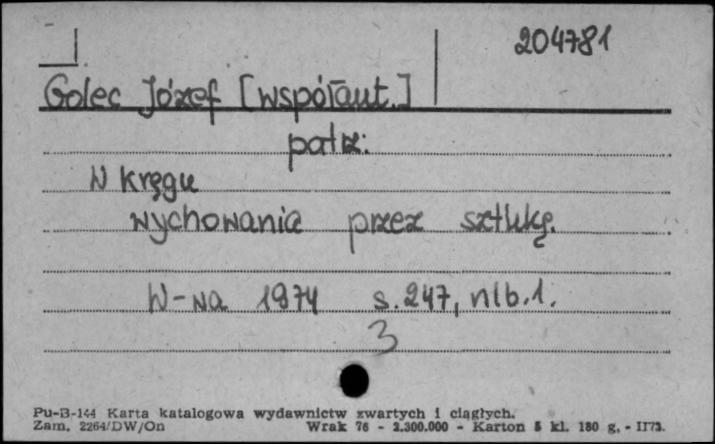 204781
Golec Józef [współaut.]
patrz:
W kręgu
wychowania przez sztukę.
W-wa 1974 s. 247, nlb. 1.
3
Pu-B-144 Karta katalogowa wydawnictw zwartych i ciągłych.
Zam. 2264/DW/On Wrak 76 - 2.300.000 - Karton 5 kl. 180 g. - II73.